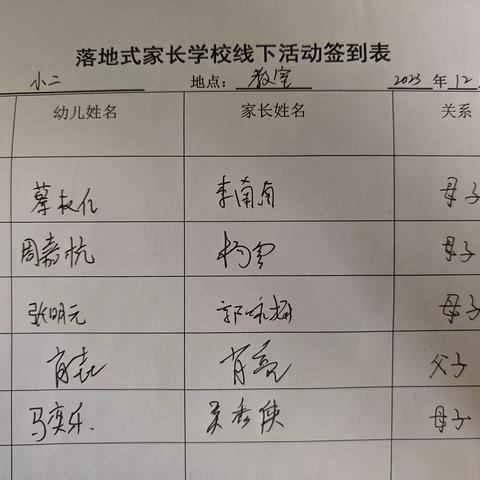 落地式家长学校线下活动签到表
小二 地点: 教室 2023 年 12
幼儿姓名 家长姓名 关系
李南南 母子
周嘉杭 杨雪 母子
张明元 郭咏梅 母子
肖垚 肖亮 父子
马奕乐 吴秀侠 母子